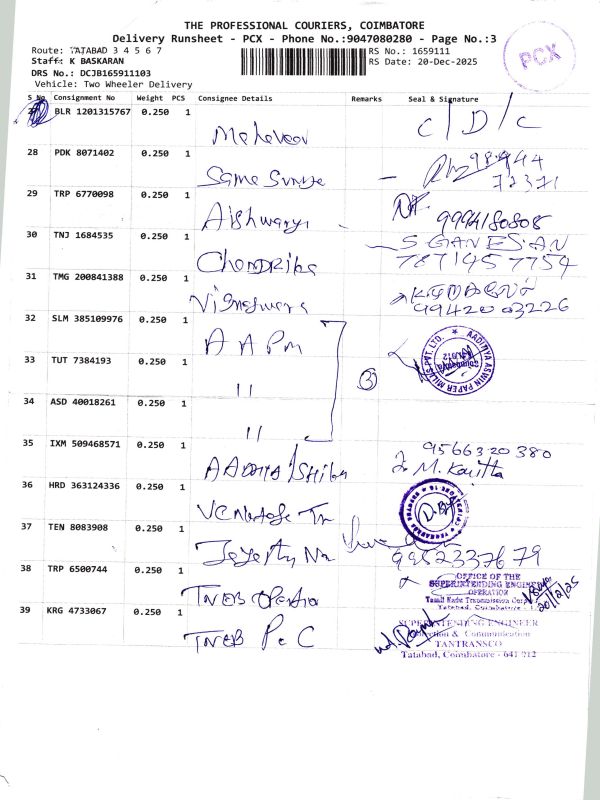 THE PROFESSIONAL COURIERS, COIMBATORE
Delivery Runsheet - PCX - Phone No.:9047080280 - Page No.:3
Route: TATABAD 3 4 5 6 7
Staff: K BASKARAN
DRS No.: DCJB165911103
Vehicle: Two Wheeler Delivery
RS No.: 1659111
RS Date: 20-Dec-2025
PCX
S No Consignment No Weight PCS Consignee Details Remarks Seal & Signature
BLR 1201315767 0.250 1 C/D/C
28 PDK 8071402 0.250 1 Same
72371
29 TRP 6770098 0.250 1 Aishwarya
9994180808
30 TNJ 1684535 0.250 1 Chandrika S GANESAN
7871457754
31 TMG 200841388 0.250 1
99420 03226
32 SLM 385109976 0.250 1 A A P M
33 TUT 7384193 0.250 1 "
3
AADITYA ASWIN PAPER MILLS PVT. LTD.
34 ASD 40018261 0.250 1 "
35 IXM 509468571 0.250 1
9566320380
M. Kavitha
36 HRD 363124336 0.250 1
37 TEN 8083908 0.250 1
38 TRP 6500744 0.250 1 TNEB Operation
OFFICE OF THE
SUPERINTENDING ENGINEER
OPERATION
Tamil Nadu Transmission Corp
Tatabad, Coimbatore
20/12/25
39 KRG 4733067 0.250 1 TNEB P & C
SUPERINTENDING ENGINEER
Protection & Communication
TANTRANSCO
Tatabad, Coimbatore - 641 012